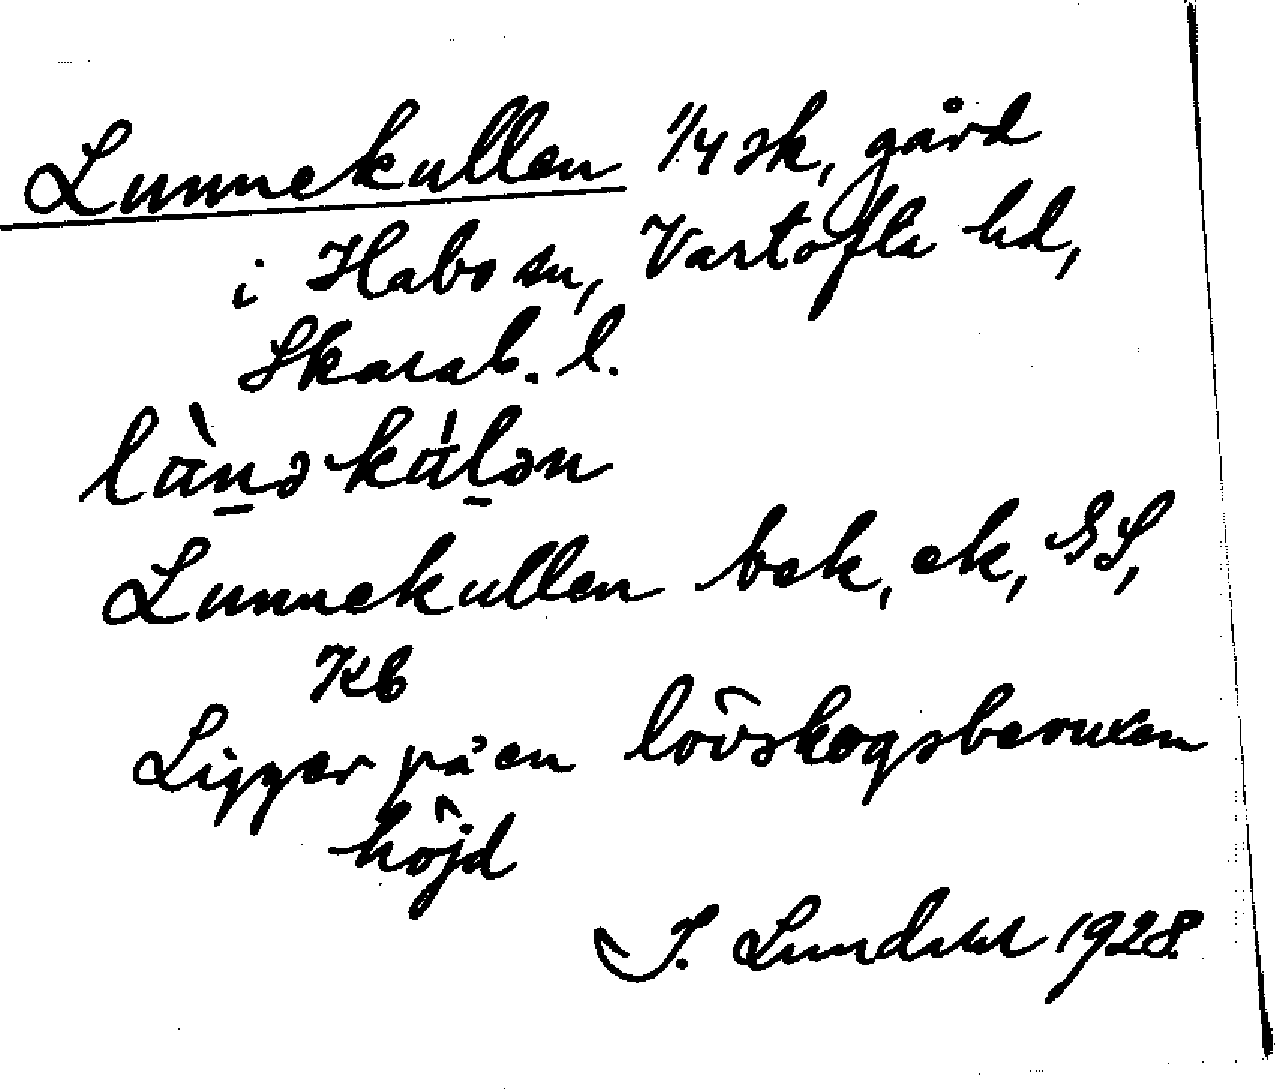 Lunnekullen 1/4 sk, gård
i Habo sn, Vartofta hd,
Skarab. l.
lùn̠əkúl̠ən
Lunnekullen bek, ek, GS,
Kb
Ligger på en lövskogsbevuxen
höjd
I. Lundahl 1928.